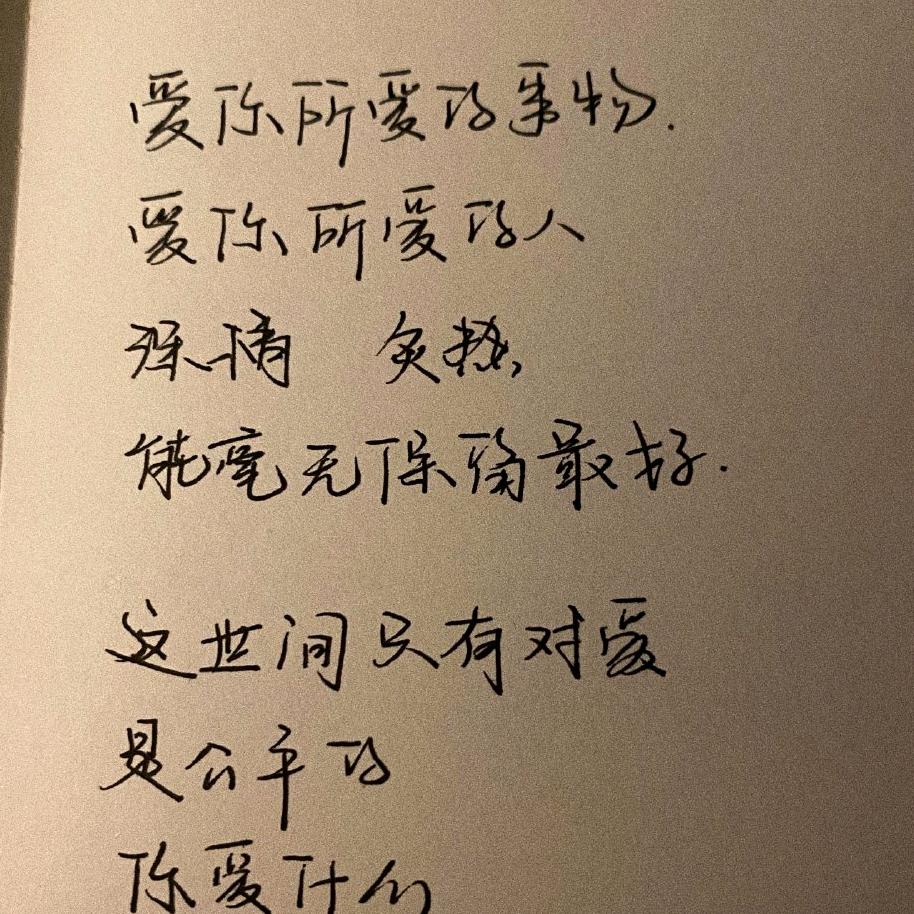 爱你所爱的事物.
爱你所爱的人
深情 炙热,
能毫无保留最好.
这世间只有对爱
是公平的
你爱什么